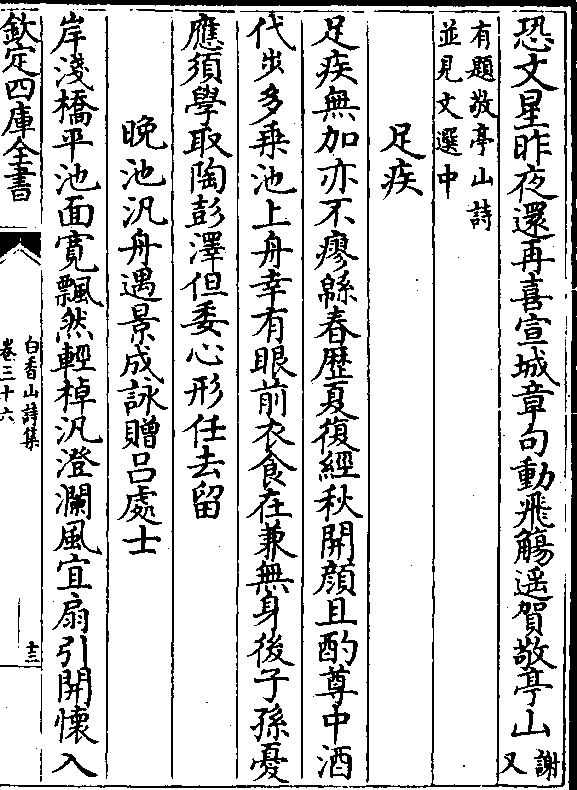 恐文星昨夜還再喜宣城章句動飛觴遥賀敬亭山謝又
有題敬亭山詩
並見文選中
足疾
足疾無加亦不瘳緜春歴夏復經秋開顔且酌尊中酒
代步多乗池上舟幸有眼前衣食在兼無身後子孫憂
應須學取陶彭澤但委心形任去留
晚池汎舟遇景成詠贈吕處士
岸淺橋平池面寛飄然輕棹汎澄瀾風宜扇引開懐入
欽定四庫全書
白香山詩集
卷三十六
十三